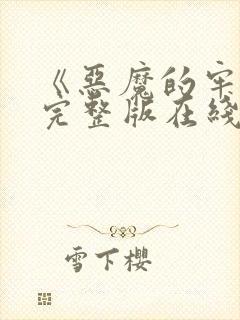 《恶魔的牢
完整版在线
雪下樱